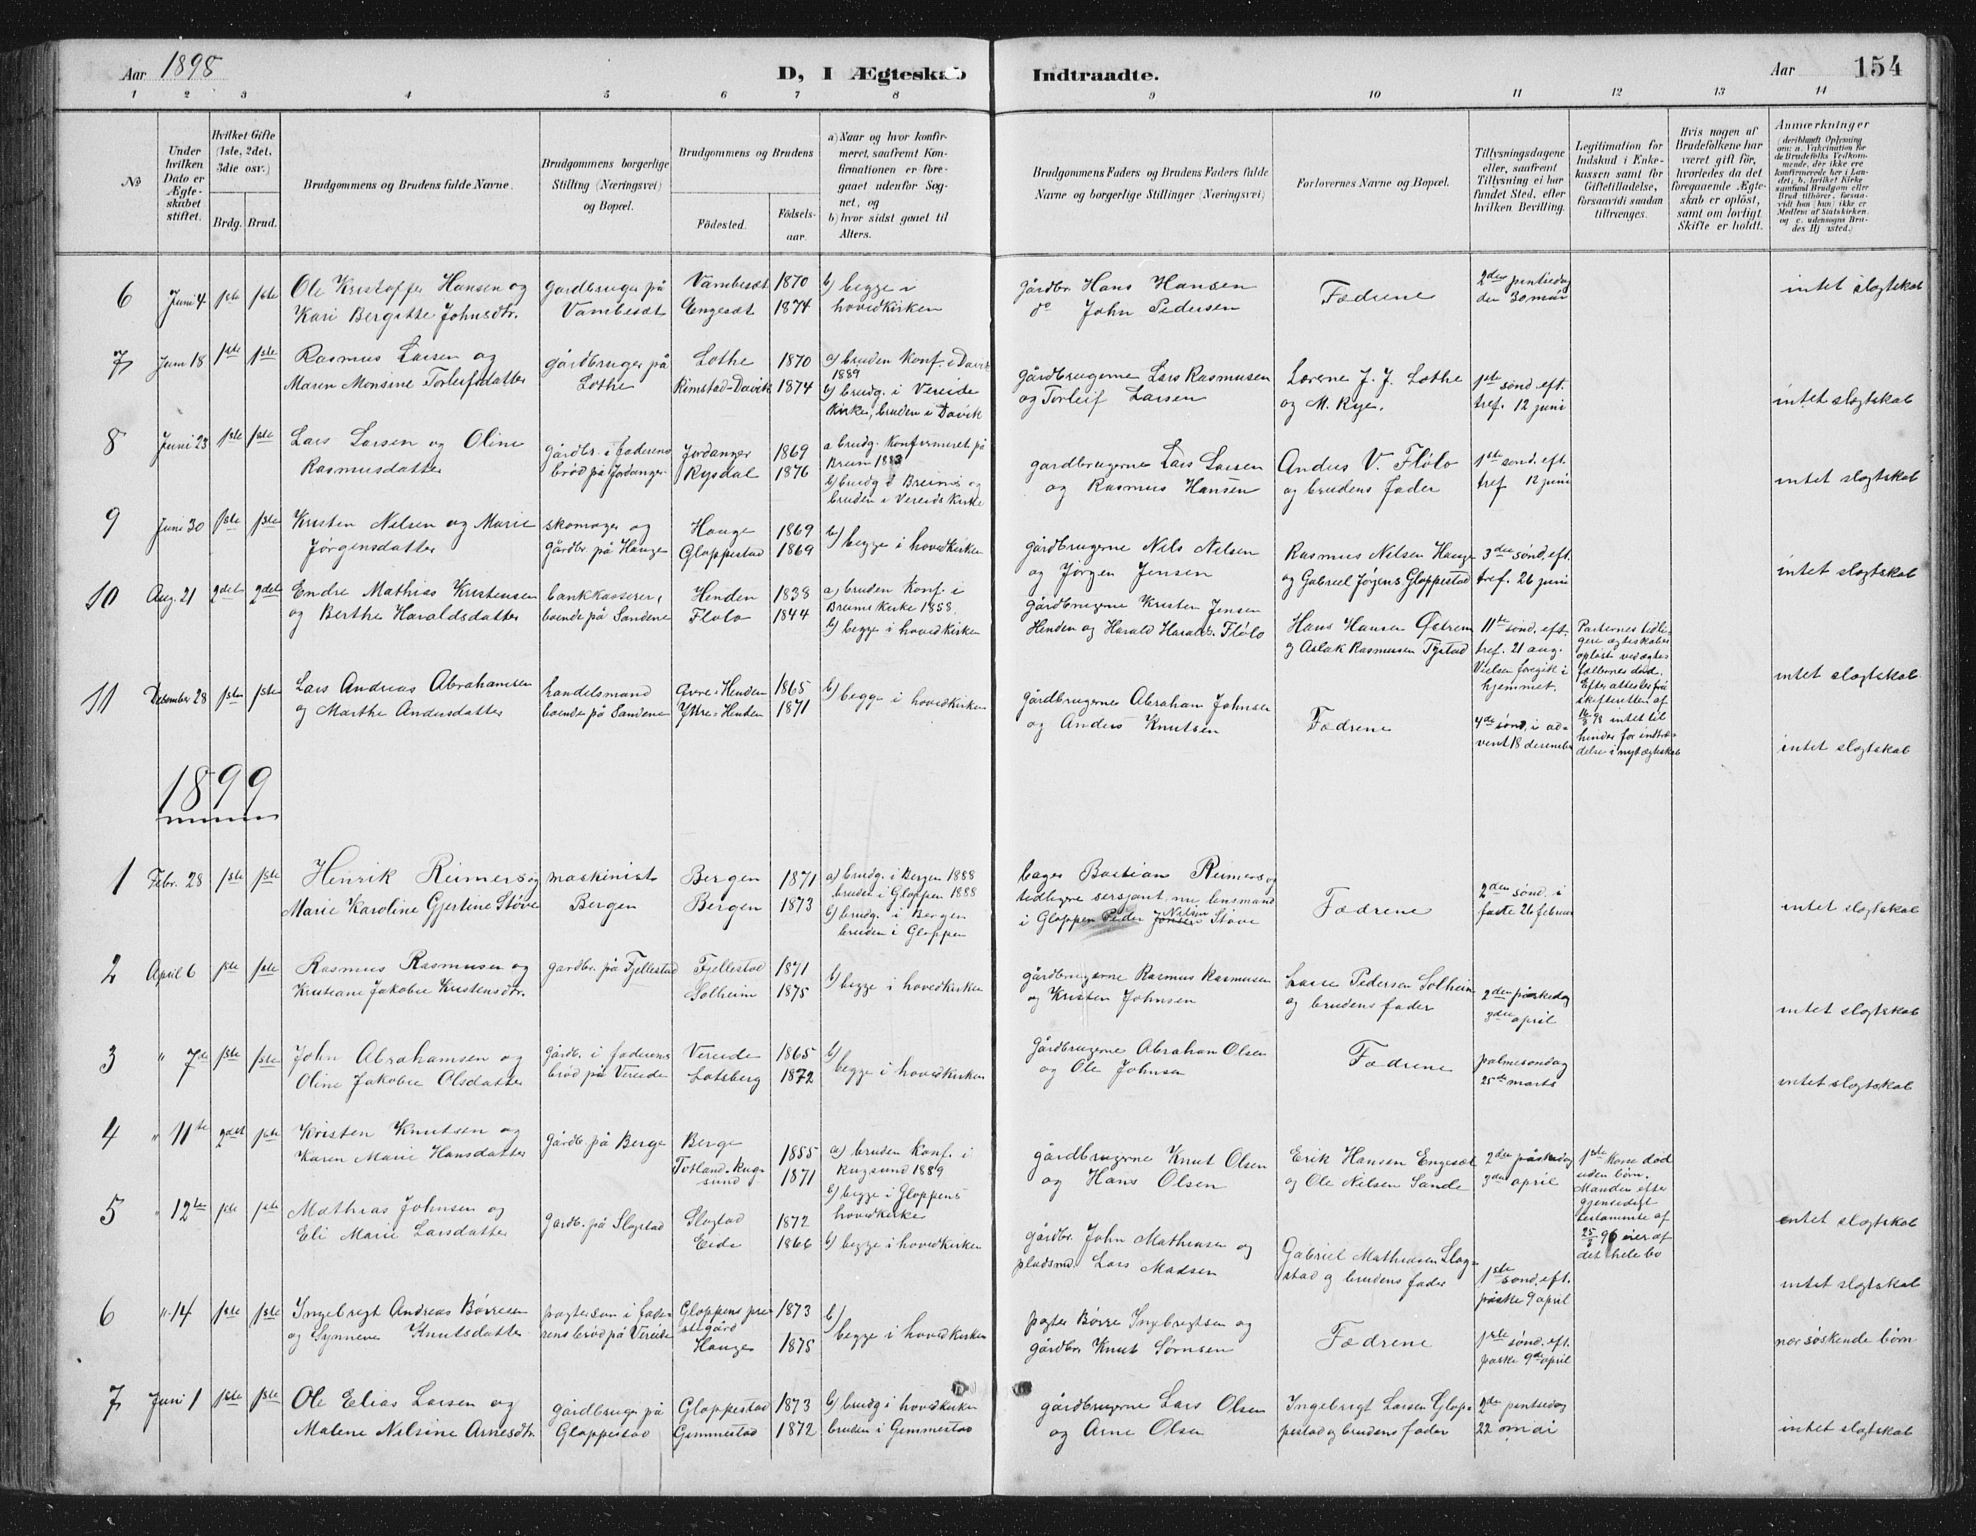 Aar 1898
D, I Ægteskab Indtraadte.
Aar 154
1 2 3 4 5 6 7 8 9 10 11 12 13 14
No
Under hvilken Dato er Ægteskabet stiftet.
Hvilket Gifte (1ste, 2det, 3die osv.)
Brdg. Brud.
Brudgommens og Brudens fulde Navne.
Brudgommens borgerlige Stilling (Næringsvei) og Bopæl.
Brudgommens og Brudens
Födested.
Födselsaar.
a) Naar og hvor konfirmeret, saafremt Konfirmationen er foregaaet udenfor Sognet, og
b) hvor sidst gaaet til Alters.
Brudgommens Faders og Brudens Faders fulde Navne og borgerlige Stillinger (Næringsvei)
Forlovernes Navne og Bopæl.
Tillysningsdagene eller, saafremt Tillysning ei har fundet Sted, efter hvilken Bevilling.
Legitimation for Indskud i Enkekassen samt for Giftetilladelse, forsaavidt saadan tiltrænges.
Hvis nogen af Brudefolkene har været gift før, hvorledes da det foregaaende Ægteskab er oplöst, samt om lovligt Skifte er holdt.
Anmærkninger
6 Juni 4 1ste 1ste
Ole Kristoffer Hansen og
Kari Bergitte Johnsdtr.
gardbruger på
Vambesæt
Vambesæt 1870
Engesæt 1874
b) begge i
hovedkirken
gårdbr. Hans Hansen
do John Pedersen
Fædrene
2den pintsedag
den 30 mai
intet slægtskab
7 Juni 18 1ste 1ste
Rasmus Larsen og
Maren Monsine Torleifsdatter
gårdbruger på
Lothe
Lothe 1870
Rimstad-Davik 1874
a) bruden Konf. i Davik
1889
b) brudg. i Vereide
Kirke, bruden i Davik
gårdbrugerne Lars Rasmusen
og Torleif Larsen
Lærerne J. J. Lothe
og M. Rye.
1ste sönd. eft.
tref. 12 juni
intet slægtskab
8 Juni 23 1ste 1ste
Lars Larsen og Oline
Rasmusdatter
gårdbr. i faderens
bröd på Jordanger
Jordanger 1869
Rysdal 1876
a brudg. Konfirmeret på
Breim 1883
b) brudg i Breims og
bruden i Vereids Kirke
gardbrugerne Lars Larsen
og Rasmus Hansen
Anders V. Flölo
og brudens fader
1ste sönd. eft.
tref 12 juni
intet slægtskab
9 Juni 30 1ste 1ste
Kristen Nilsen og Marie
Jørgensdatter
skomager og
gårdbr. på Hauge
Hauge 1869
Gloppestad 1869
b) begge i hovedkirken
gårdbrugerne Nils Nilsen
og Jörgen Jensen
Rasmus Nilsen Hauge
og Gabriel Jörgens. Gloppestad
3die sönd. eft.
tref. 26 juni
intet slægtskab
10 Aug. 21 2det 2det
Endre Mathias Kristensen
og Berthe Haraldsdatter
bankkasserer,
boende på Sandene
Henden 1838
Flölo 1844
a) bruden Konf. i
Breims kirke 1858.
b) begge i hovedkirken
gårdbrugerne Kristen Jensen
Henden og Harald Haralds. Flölo
Hans Hansen Östrem
og Aslak Rasmusen Tystad
11te sönd. eft.
tref. 21 aug.
Vielsen foregik i
hjemmet.
Parternes tidligere
ægteskaber
oplöst ved ægtefællernes
död.
Efter attester fra
skifteretten af
16/8 98 intet til
hinder for indtrædelse
i nyt ægteskab
intet slægtskab
11 December 28 1ste 1ste
Lars Andreas Abrahamsen
og Marthe Andersdatter
handelsmand
boende på Sandene
Övre-Henden 1865
Ytre-Henden 1871
b) begge i hovedkirken
gårdbrugerne Abraham Johnsen
og Anders Knutsen
Fædrene
4de sönd. i advent
18 december
intet slægtskab
1899
1 Febr. 28 1ste 1ste
Henrik Reimers og
Marie Karoline Gjertine Støve
maskinist
Bergen
Bergen 1871
Bergen 1873
a) brudg. i Bergen 1888
bruden i Gloppen 1888
b) brudg. i Bergen
bruden i Gloppen
bager Bastian Reimers og
tidligere sersjant, nu lensmand
i Gloppen Peder Jonsen Nilsen Støve
Fædrene
2den sönd. i
faste 26 februar
intet slægtskab
2 April 6 1ste 1ste
Rasmus Rasmusen og
Kristiane Jakobie Kristensdtr.
gardbr. på Fjellestad
Fjellestad 1871
Solheim 1875
b) begge i hovedkirken
gårdbrugerne Rasmus Rasmusen
og Kristen Johnsen
Lasse Pedersen Solheim
og brudens fader
2den påskedag
3die april
intet slægtskab
3 " 7de 1ste 1ste
John Abrahamsen og
Oline Jakobie Olsdatter
gårdb. i faderens
bröd på Vereide
Vereide 1865
Lotsberg 1872
b) begge i hovedkirken
Gårdbrugerne Abraham Olsen
og Ole Johnsen
Fædrene
palmesöndag
25de marts
intet slægtskab
4 " 11te 2det 1ste
Kristen Knutsen og
Karen Marie Hansdatter
gårdb. på Berge
Berge 1855
Totland-Rugsund 1871
a) bruden Konf. i
Rugsund 1889
b) begge i Gloppens
hovedkirke
gårdbrugerne Knut Olsen
og Hans Olsen
Erik Hansen Engesæt
og Ole Nilsen Sande
2den påskedag
3die april
1ste Kone död
uden börn.
Manden efter
gjensidigt
testamente af
25/3 96 eier af
det hele bo
intet slægtskab
5 " 12te 1ste 1ste
Mathias Johnsen og
Eli Marie Larsdatter
gardb. på Slogstad
Slogstad 1872
Eide 1866
b) begge i hovedkirken
gårdbr. John Mathiasen og
pladsmd. Lars Madsen
Gabriel Mathiasen Slogstad
og brudens fader
1ste sönd. eft.
påske 9 april
intet slægtskab
6 " 14 1ste 1ste
Ingebrigt Andreas Börresen
og Synneve Knutsdatter
pagtersön i faderens
bröd på Vereide
Gloppens prestegård 1873
Hauge 1875
b) begge i hovedkirken
pagter Börre Ingebrigtsen og
gårdbr Knut Sörnsen
Fædrene
1ste sönd. eft.
påske 9de april
nær söskende börn
7 Juni 1 1ste 1ste
Ole Elias Larsen og
Malene Nilsine Arnesdtr.
gårdbruger på
Gloppestad
Gloppestad 1873
Gimmestad 1872
b) brudg i hovedkirken
bruden i Gimmestad
gårdbrugerne Lars Olsen
og Arne Olsen
Ingebrigt Larsen Gloppestad
og brudens fader
2den pintsedag
22 mai
intet slægtskab